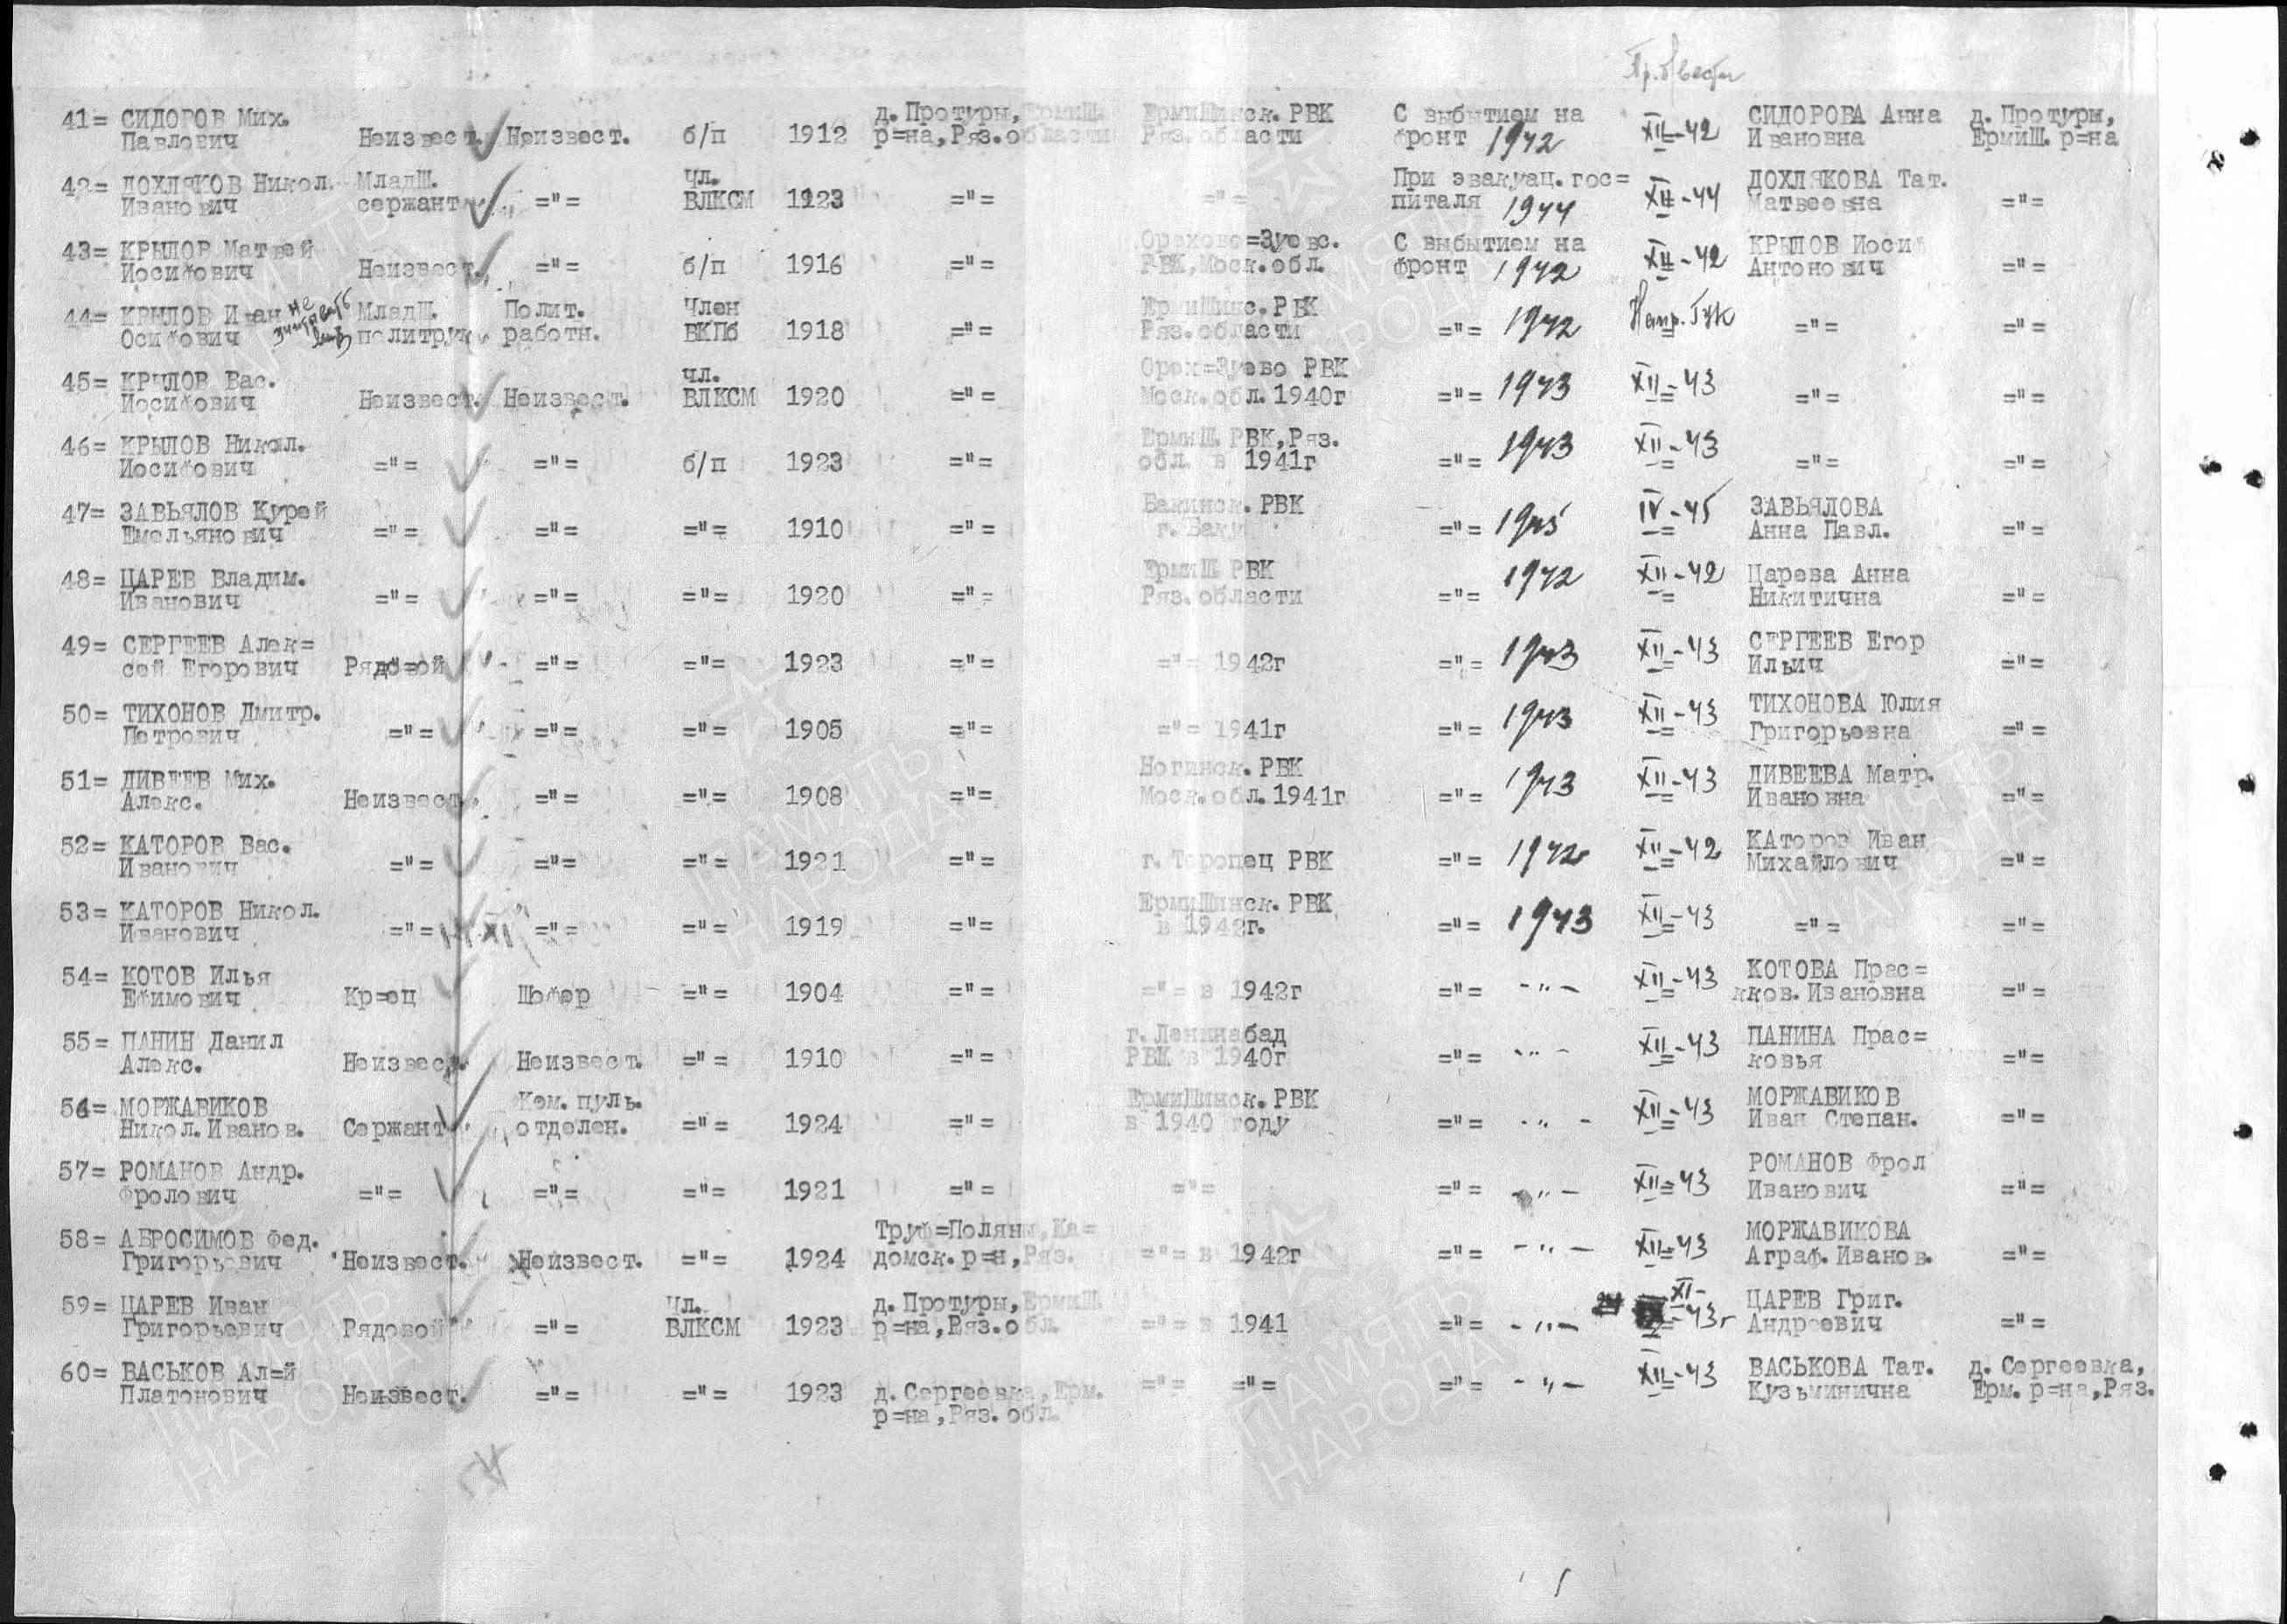 41= СИДОРОВ Мих. д. Протуры, ЕрмиШ. ЕрмиШинск. РВК С выбытием на СИДОРОВА Анна д. Протуры,
Павлович Неизвест. Неизвест. б/п 1912 р=на, Ряз. области Ряз. области фронт 1942 XII-42 Ивановна ЕрмиШ. р=на
42= ДОХЛЯКОВ Никол. МладШ. чл. При эвакуац. гос= ДОХЛЯКОВА Тат.
Иванович сержант ="= ВЛКСМ 1923 ="= ="= питаля 1944 XII-44 Матвеевна ="=
43= КРЫЛОВ Матвей Орехово=Зуевс. С выбытием на КРЫЛОВ Иосиф
Иосифович Неизвест. ="= б/п 1916 ="= РВК, Моск. обл. фронт 1942 XII-42 Антонович ="=
44= КРЫЛОВ Иван не МладШ. Полит. Член ЕрмиШинс. РВК
Осифович политрук работн. ВКПб 1918 ="= Ряз. области ="= 1942 Напр. ГУК ="= ="=
45= КРЫЛОВ Вас. чл. Орех=Зуево РВК
Иосифович Неизвест. Неизвест. ВЛКСМ 1920 ="= Моск. обл. 1940г ="= 1943 XII-43 ="= ="=
46= КРЫЛОВ Никол. ЕрмиШ. РВК, Ряз.
Иосифович ="= ="= б/п 1923 ="= обл. в 1941г ="= 1943 XII-43 ="= ="=
47= ЗАВЬЯЛОВ Курей Бакинск. РВК ЗАВЬЯЛОВА
Емельянович ="= ="= ="= 1910 ="= г. Баку ="= 1945 IV-45 Анна Павл. ="=
48= ЦАРЕВ Владим. ЕрмиШ. РВК Царева Анна
Иванович ="= ="= ="= 1920 ="= Ряз. области ="= 1942 XII-42 Никитична ="=
49= СЕРГЕЕВ Алек= СЕРГЕЕВ Егор
сей Егорович Рядовой ="= ="= 1923 ="= ="= 1942г ="= 1943 XII-43 Ильич ="=
50= ТИХОНОВ Дмитр. ТИХОНОВА Юлия
Петрович ="= ="= ="= 1905 ="= ="= 1941г ="= 1943 XII-43 Григорьевна ="=
51= ДИВЕЕВ Мих. Ногинск. РВК ДИВЕЕВА Матр.
Алекс. Неизвест. ="= ="= 1908 ="= Моск. обл. 1941г ="= 1943 XII-43 Ивановна ="=
52= КАТОРОВ Вас. КАторов Иван
Иванович ="= ="= ="= 1921 ="= г. Торопец РВК ="= 1942 XII-42 Михайлович ="=
53= КАТОРОВ Никол. ЕрмиШинск. РВК
Иванович ="= ="= ="= 1919 ="= в 1942г. ="= 1943 XII-43 ="= ="=
54= КОТОВ Илья КОТОВА Прас=
Ефимович Кр=ец Шофер ="= 1904 ="= ="= в 1942г ="= -"- XII-43 кков. Ивановна ="=
55= ПАНИН Данил г. Ленинабад ПАНИНА Прас=
Алекс. Неизвест. Неизвест. ="= 1910 ="= РВК в 1940г ="= -"- XII-43 ковья ="=
56= МОРЖАВИКОВ Ком. пуль. ЕрмиШинск. РВК МОРЖАВИКОВ
Никол. Иванов. Сержант отделен. ="= 1924 ="= в 1940 году ="= -"- XII-43 Иван Степан. ="=
57= РОМАНОВ Андр. РОМАНОВ Фрол
Фролович ="= ="= ="= 1921 ="= ="= ="= -"- XII-43 Иванович ="=
58= АБРОСИМОВ Фед. Труф=Поляны, Ка= МОРЖАВИКОВА
Григорьевич Неизвест. Неизвест. ="= 1924 домск. р=н, Ряз. ="= в 1942г ="= -"- XII-43 Аграф. Иванов. ="=
59= ЦАРЕВ Иван Чл. д. Протуры, ЕрмиШ. XI- ЦАРЕВ Григ.
Григорьевич Рядовой ="= ВЛКСМ 1923 р=на, Ряз. обл. ="= в 1941 ="= -"- 43г Андреевич ="=
60= ВАСЬКОВ Ал=й ВАСЬКОВА Тат. д. Сергеевка,
Платонович Неизвест. ="= ="= 1923 д. Сергеевка, Ерм. ="= ="= ="= -"- XII-43 Кузьминична Ерм. р=на, Ряз.
р=на, Ряз. обл.
ПАМЯТЬ
НАРОДА